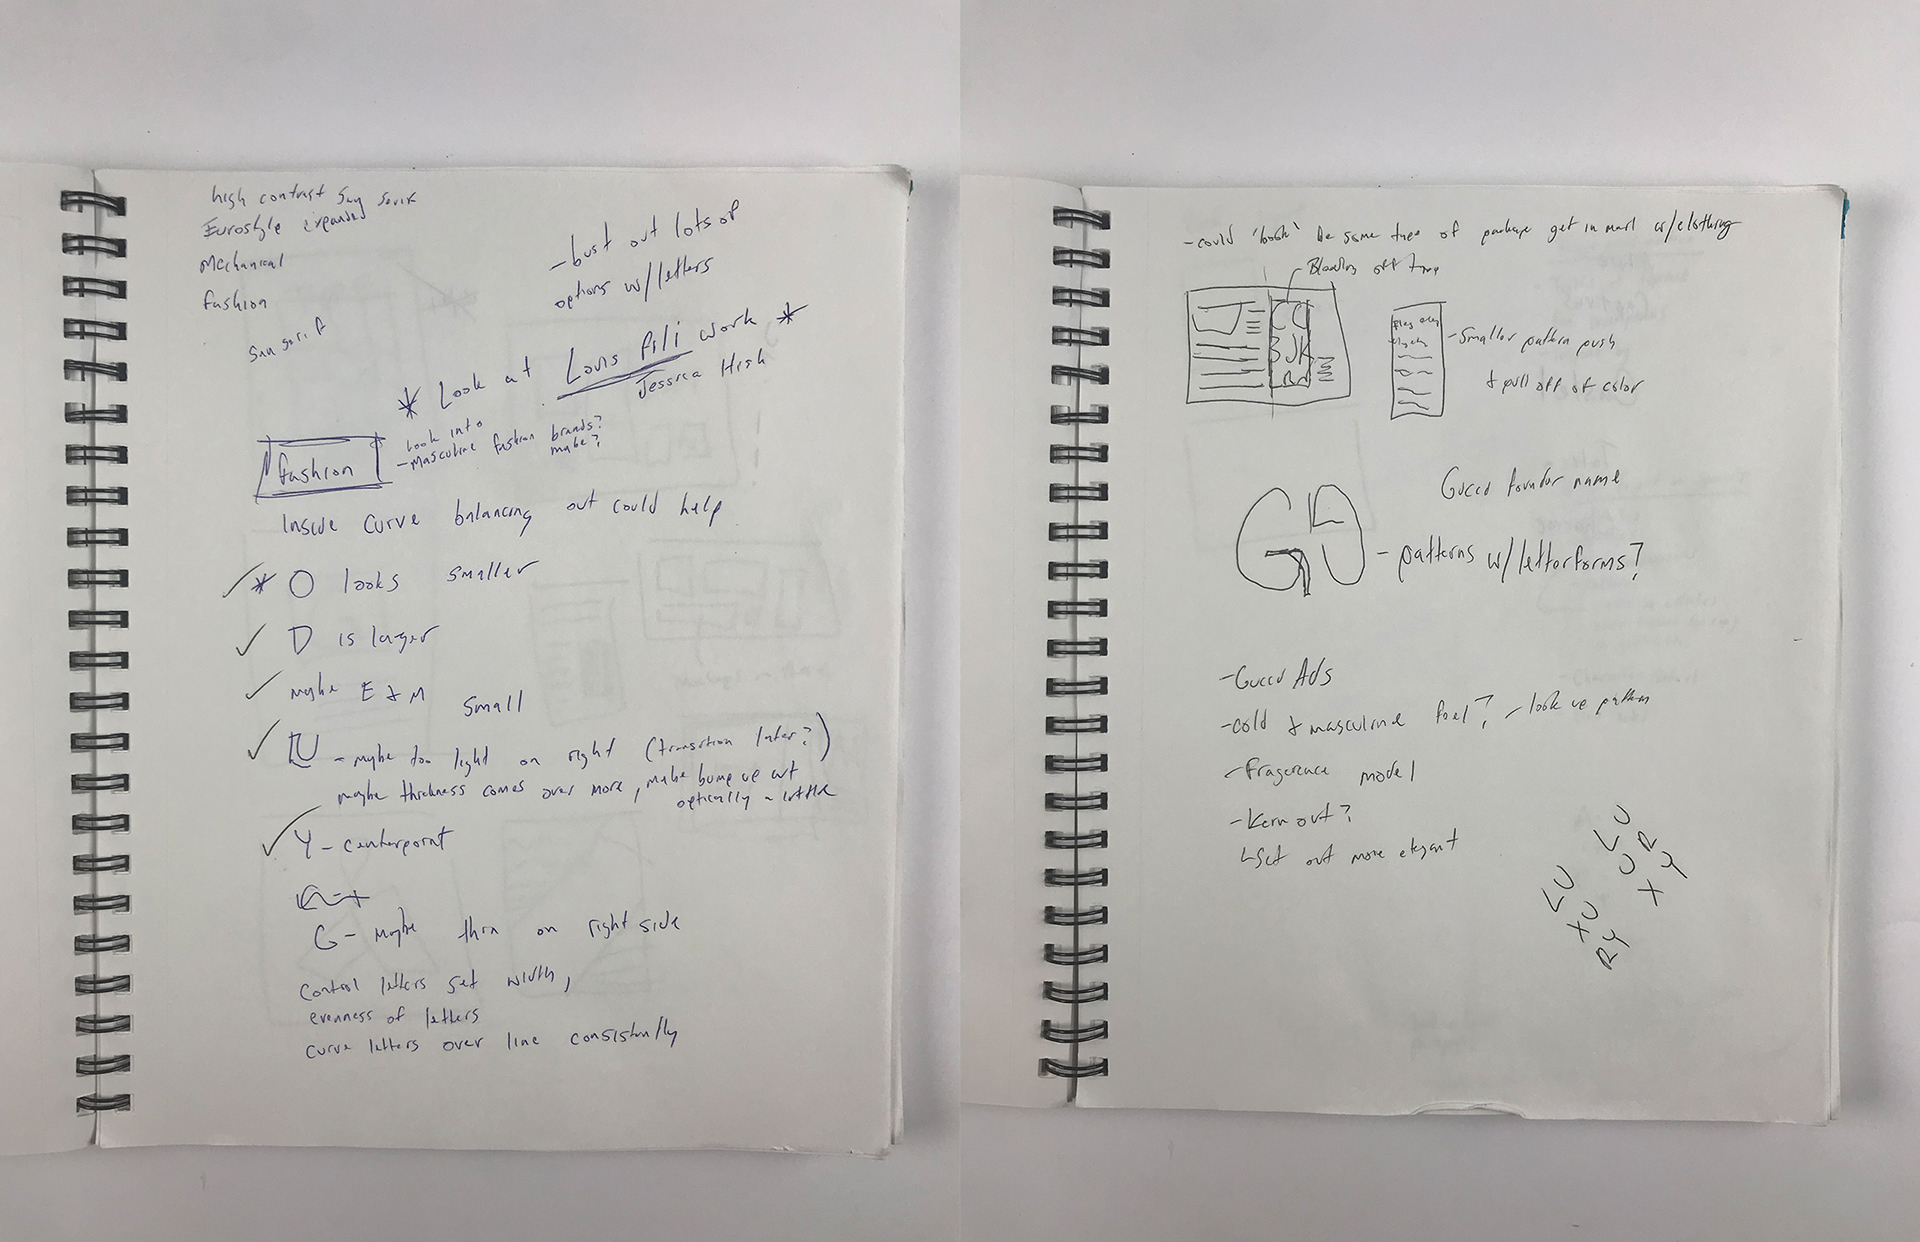 high contrast San Serif
Eurostyle expanded
Mechanical
fashion
San serif
- bust out lots of
options w/letters
* Look at Louis fili work *
Jessica Hish
fashion
Look into
- Masculine fashion brands?
maybe?
Inside curve balancing out could help
* O looks smaller
D is larger
maybe E & M small
U - maybe too light on right (transition later?)
maybe thickness comes over more, maybe bump up wt
optically a little
Y - centerpoint
G - Maybe thin on right side
Control letters set width,
evenness of letters
curve letters over line consistently
- could 'book' be some type of package get in mail w/clothing
Bleeding off
- Smaller pattern push
& pull off of color
Gucci founder name
G
- patterns w/letterforms?
- Gucci Ads
- cold & masculine feel? - look up pattern
- Fragerence model
- Kern out?
Set out more elegant
LU
UR
XY
LU
XU
RY